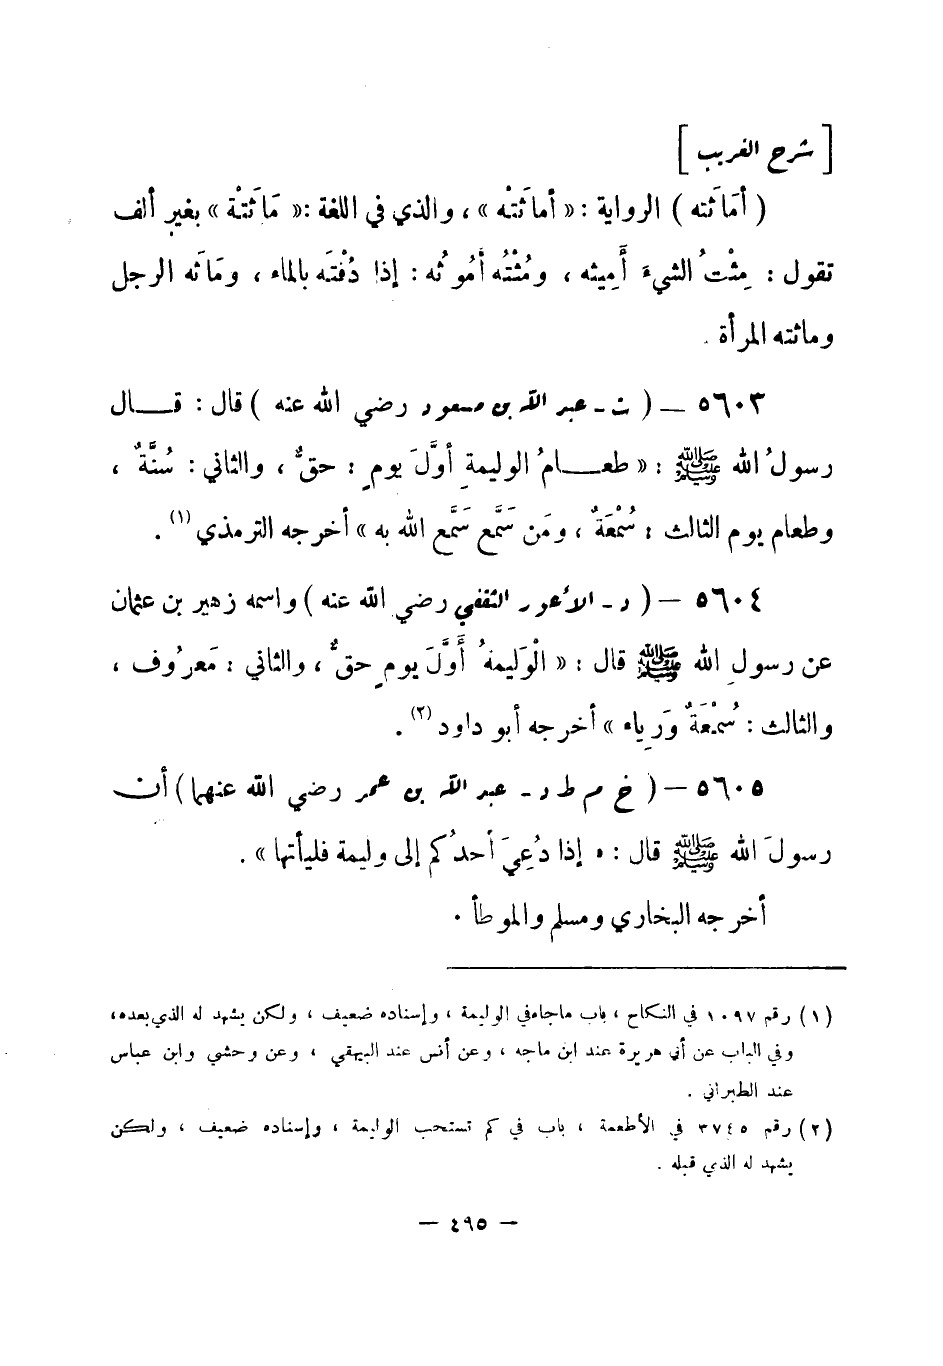 [ شرح الغريب ]
( أمَاثَته ) الرواية : « أماثَتْه » ، والذي في اللغة : « مَاثَتْة » بغير ألف
تقول : مِثْتُ الشيءَ أَمِيثه ، ومُثْتُه أَمُوثُه : إذا دُفْتَه بالماء ، ومَاثَه الرجل
وماثته المرأة .
٥٦٠٣ ــ ( ت ـ عبد الله بن مسعود رضي الله عنه ) قال : قــال
رسولُ الله ﷺ : « طعــامُ الوليمةِ أوَّلَ يومٍ : حقٌّ ، والثاني : سُنَّةٌ ،
وطعام يوم الثالث : سُمْعَةٌ ، ومَن سَمَّع سَمَّع الله به » أخرجه الترمذي (١) .
٥٦٠٤ ــ ( د ـ الأعور الثقفي رضي الله عنه ) واسمه زهير بن عثمان
عن رسولِ الله ﷺ قال : « الْوَلِيمةُ أَوَّلَ يومٍ حقٌّ ، والثاني : مَعرُوف ،
والثالث : سُمْعَةٌ وَرِياء » أخرجه أبو داود (٢) .
٥٦٠٥ ــ ( خ م ط د ـ عبد الله بن عمر رضي الله عنهما ) أن
رسولَ الله ﷺ قال : « إذا دُعِيَ أحدُكم إلى وليمة فليأتها » .
أخرجه البخاري ومسلم والموطأ .
(١) رقم ١٠٩٧ في النكاح ، باب ماجاء في الوليمة ، وإسناده ضعيف ، ولكن يشهد له الذي بعده ،
وفي الباب عن أبي هريرة عند ابن ماجه ، وعن أنس عند البيهقي ، وعن وحشي وابن عباس
عند الطبراني .
(٢) رقم ٣٧٤٥ في الأطعمة ، باب في كم تستحب الوليمة ، وإسناده ضعيف ، ولكن
يشهد له الذي قبله .
— ٤٩٥ —